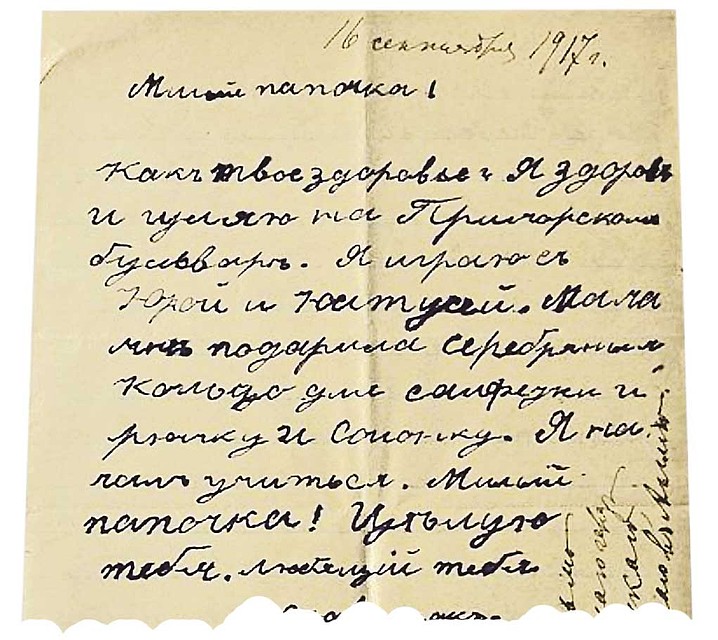 16 сентября 1917 г.
Милый папочка!
Какъ твое здоровье? Я здоровъ
и гуляю на Приморскомъ
бульварѣ. Я играю съ
Юрой и Катусей. Мама
мнѣ подарила серебряный
кольцо для салфетки и
рюмку и солонку. Я на-
чалъ учиться. Милый
папочка! Цѣлую
тебя. любящій тебя